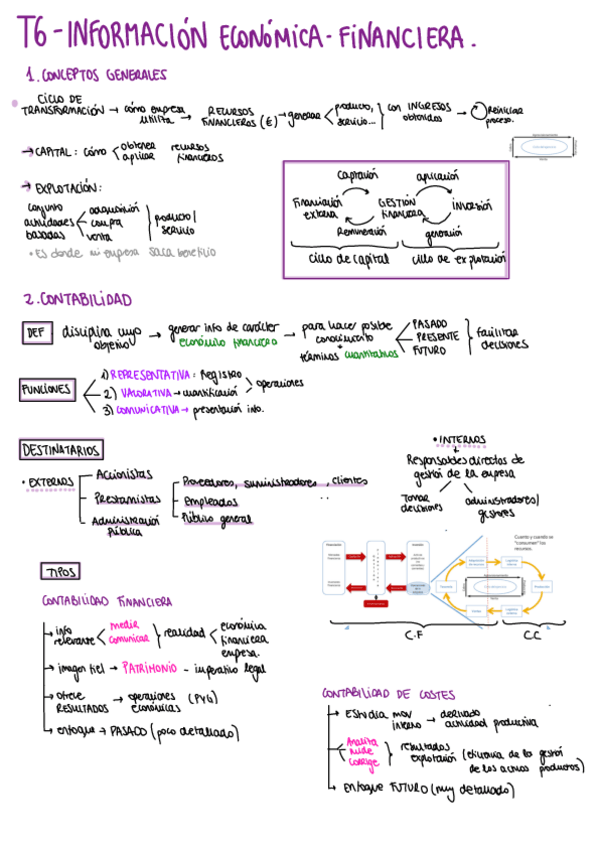 T6 - INFORMACIÓN ECONÓMICA - FINANCIERA.
1. CONCEPTOS GENERALES
CICLO DE TRANSFORMACIÓN → cómo empresa utiliza → RECURSOS FINANCIEROS (€) → generar < producto, servicio... > con INGRESOS obtenidos → Reiniciar proceso.
→ CAPITAL: cómo < obtener aplicar recursos financieros
→ EXPLOTACIÓN:
conjunto actividades basadas < adquisición compra venta } producto/ servicio
• Es donde mi empresa saca beneficio
captación aplicación
Financiación externa GESTIÓN financiera inversión
Remuneración generación
ciclo de capital ciclo de explotación
2. CONTABILIDAD
DEF disciplina cuyo objetivo → generar info de carácter económico financiero → para hacer posible conocimiento + términos cuantitativos < PASADO PRESENTE FUTURO } facilitar decisiones
FUNCIONES
1) REPRESENTATIVA: Registro
2) VALORATIVA → cuantificación > operaciones
3) COMUNICATIVA → presentación info.
DESTINATARIOS
• EXTERNOS
Accionistas
Prestamistas
Administración Pública
Proveedores, suministradores, clientes
Empleados
Público general
• INTERNOS
Responsables directos de gestión de la empresa
Tomar decisiones
administradores/ gestores
Cuanto y cuando se "consumen" los recursos.
C.F C.C.
TIPOS
CONTABILIDAD FINANCIERA
→ info relevante < medir comunicar } realidad < económica financiera empresa.
→ imagen fiel → PATRIMONIO - imperativo legal
→ ofrece RESULTADOS → operaciones económicas (PYG)
→ enfoque → PASADO (poco detallado)
CONTABILIDAD DE COSTES
→ Estudia mov interno → derivado actividad productiva
→ Analiza mide corrige } resultados explotación (eficiencia de la gestión de los activos productos)
→ Enfoque FUTURO (muy detallado)